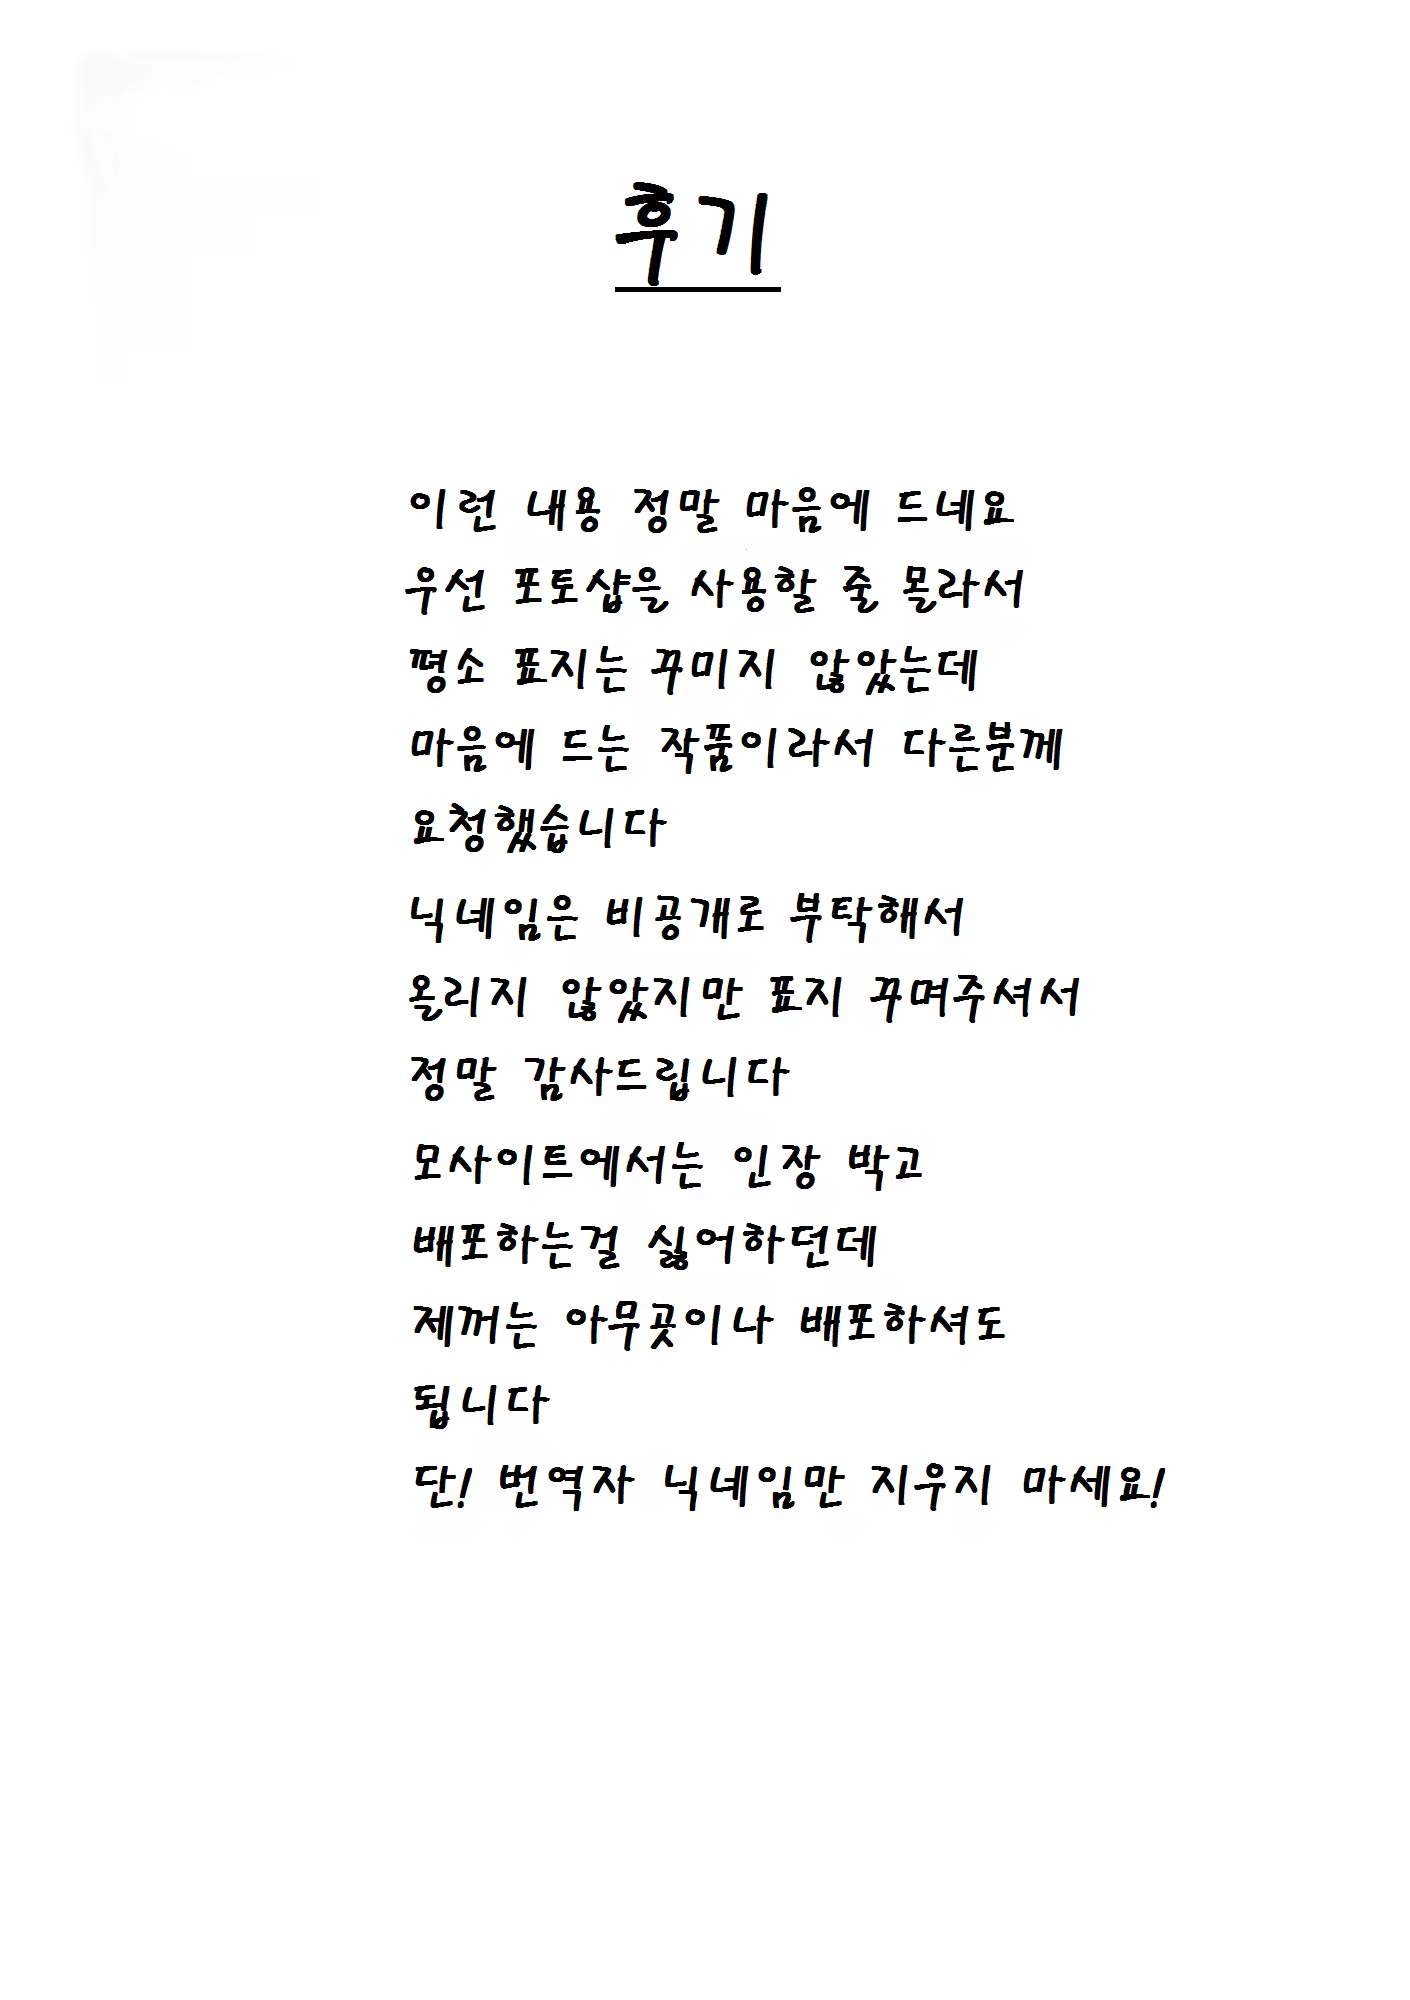 후기
이런 내용 정말 마음에 드네요
우선 포토샵을 사용할 줄 몰라서
평소 표지는 꾸미지 않았는데
마음에 드는 작품이라서 다른분께
요청했습니다
닉네임은 비공개로 부탁해서
올리지 않았지만 표지 꾸며주셔서
정말 감사드립니다
모사이트에서는 인장 박고
배포하는걸 싫어하던데
제꺼는 아무곳이나 배포하셔도
됩니다
단! 번역자 닉네임만 지우지 마세요!